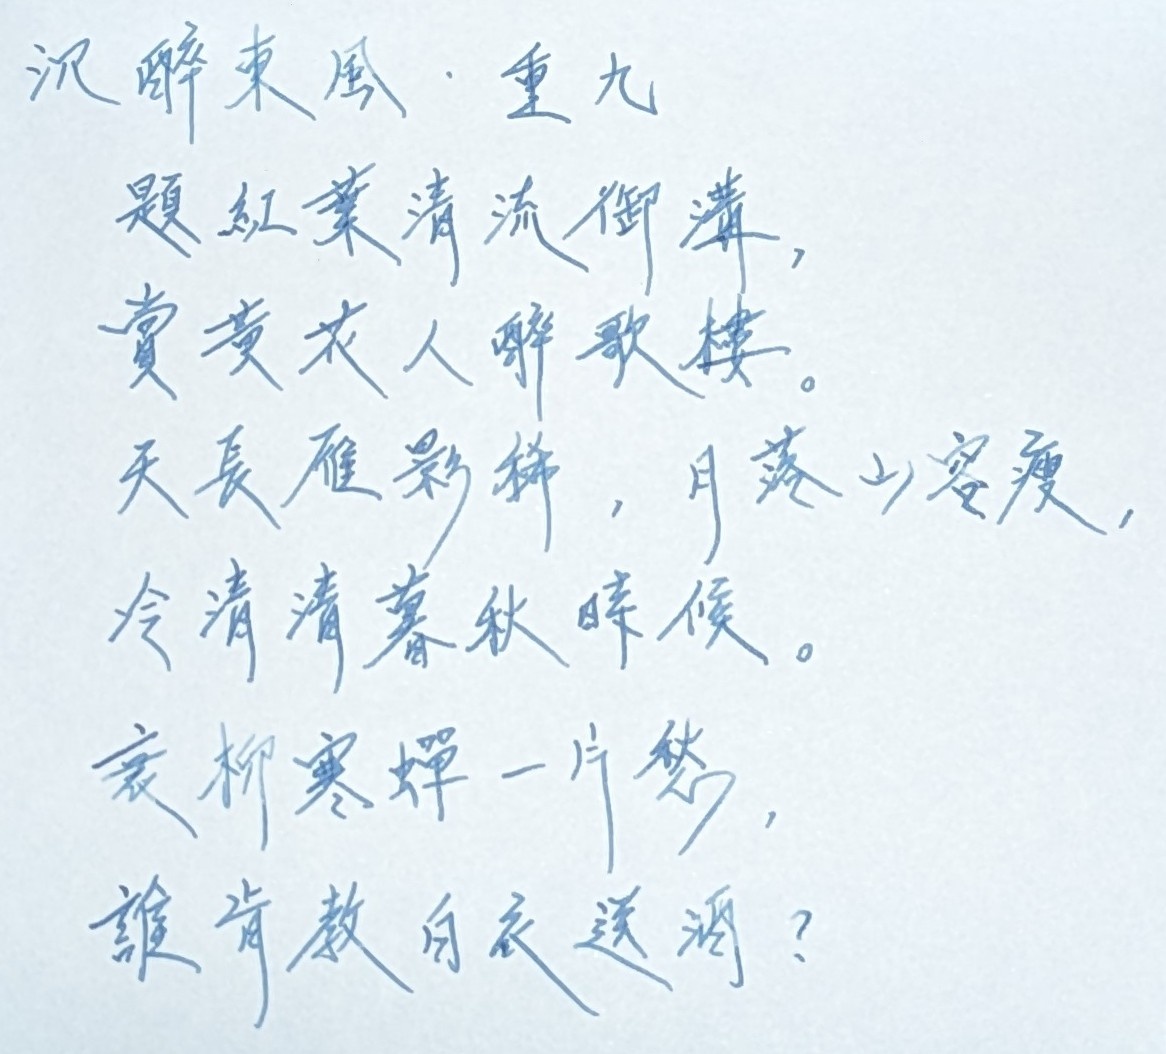 沉醉東風·重九
題紅葉清流御溝，
賞黃花人醉歌樓。
天長雁影稀，月落山容瘦，
冷清清暮秋時候。
衰柳寒蟬一片愁，
誰肯教白衣送酒？